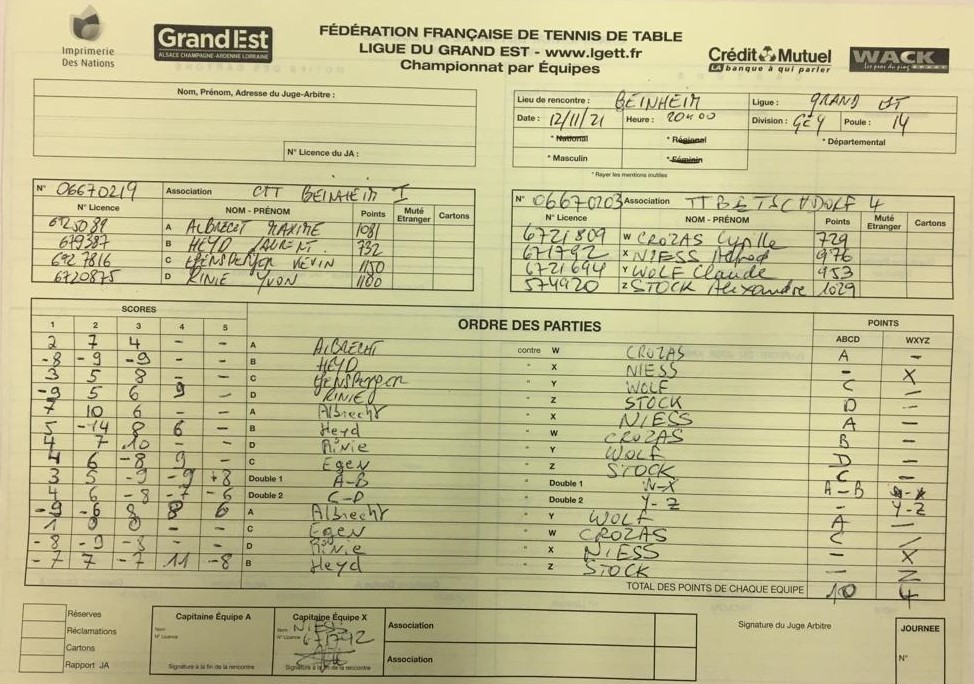 Imprimerie Des Nations
Grand Est
ALSACE CHAMPAGNE-ARDENNE LORRAINE
FÉDÉRATION FRANÇAISE DE TENNIS DE TABLE
LIGUE DU GRAND EST - www.lgett.fr
Championnat par Équipes
Crédit Mutuel
LA banque à qui parler
WACK
Nom, Prénom, Adresse du Juge-Arbitre :
N° Licence du JA :
Lieu de rencontre : BEINHEIM Ligue : GRAND EST
Date : 12/11/21 Heure : 20H00 Division : GE4 Poule : 14
* National * Régional * Départemental
* Masculin * Féminin
* Rayer les mentions inutiles
N° 06670219 Association CTT BEINHEIM I
N° Licence NOM - PRÉNOM Points Muté Etranger Cartons
A ALBRECHT MAXIME 1081
679387 B HEYD LAURENT 732
6927816 C 1150
6720875 D RINIE YVON 1100
N° 06670203 Association TTBETSCHDORF 4
N° Licence NOM - PRÉNOM Points Muté Etranger Cartons
6721809 W CROZAS Cyrille 729
671792 X NIESS 976
6721694 Y WOLF Claude 953
574920 Z STOCK Alexandre 1029
SCORES ORDRE DES PARTIES POINTS
1 2 3 4 5 ABCD WXYZ
2 7 4 - - A ALBRECHT contre W CROZAS A -
-8 -9 -9 B HEYD " X NIESS - X
3 5 8 - - C " Y WOLF C -
-9 5 6 9 - D RINIE " Z STOCK D -
7 10 6 - - A Albrecht " X NIESS A -
5 -14 8 6 - B Heyd " W CROZAS B -
4 7 10 - - D Rinie " Y WOLF D -
4 6 -8 9 - C Egen " Z STOCK C -
3 5 -9 -9 +8 Double 1 A-B " Double 1 W-X A-B
4 6 -8 -7 -6 Double 2 C-D " Double 2 Y-Z - Y-Z
-9 -6 8 8 6 A Albrecht " Y WOLF A -
C Egen " W CROZAS C -
-8 -9 D Rinie " X NIESS - X
-7 7 -7 11 -8 B Heyd " Z STOCK - Z
TOTAL DES POINTS DE CHAQUE EQUIPE 10 4
Réserves
Réclamations
Cartons
Rapport JA
Capitaine Équipe A
Nom
N° Licence
Signature à la fin de la rencontre
Capitaine Équipe X
Nom NIESS
N° Licence 671792
Signature à la fin de la rencontre
Association
Association
Signature du Juge Arbitre
JOURNEE
N°